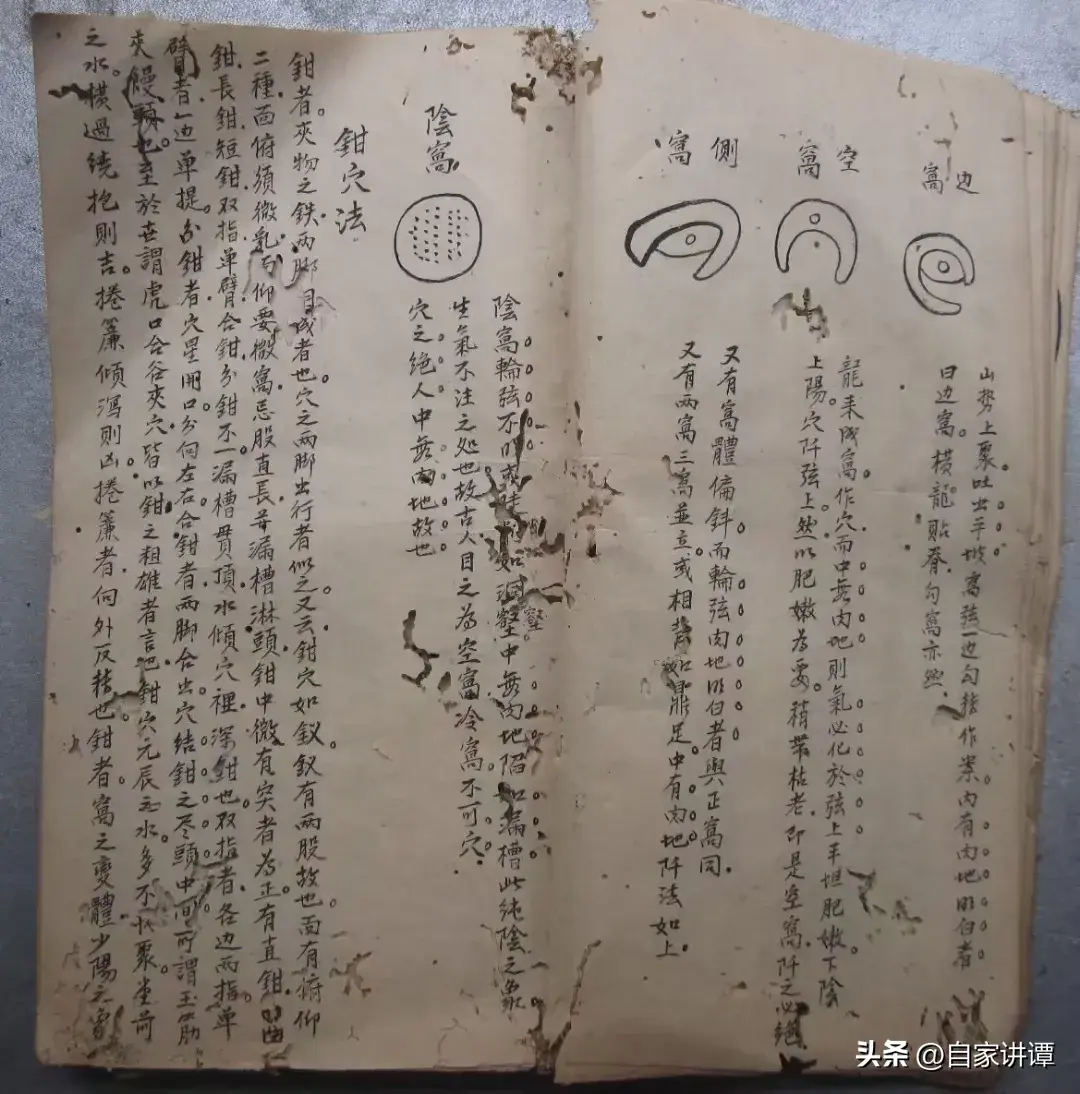 边窩
山势上聚。吐出平坡。窩弦一边勾轉作案。内有肉地明白者
曰边窩。橫龍貼脊勾窩亦然。
空窩
龍来成窩。作穴。而中無肉地。則氣必化於弦上平坦肥嫩。下陰
上陽。穴阡弦上。然以肥嫩為要。稍帶枯老。即是空窩。阡之必絕。
側窩
又有窩體偏斜。而輪弦肉地明白者。與正窩同。
又有两窩三窩並立。或相背如鼎足。中有肉地。阡法如上。
陰窩
陰窩輪弦不明。或 如洞壑。中無肉地。陷如漏槽。此純陰之象。
生氣不注之処也。故古人目之為空窩冷窩。不可穴。
穴之绝人。中無肉地故也。
鉗穴法
鉗者。夾物之鉄。两脚 者也。穴之两脚出行者似之。又云鉗穴如釵。釵有两股故也。面有俯仰
二種。面俯須微乳。面仰要微窩。忌股直長。并漏槽淋頭。鉗中微有突者為正。有直鉗。曲
鉗。長鉗。短鉗。双指。单臂。合鉗。分鉗不一。漏槽貫頂。水傾穴裡。深鉗也。双指者。各边两指。单
臂者。一边单提。分鉗者。穴星開口。分向左右。合鉗者。两脚合出。穴結鉗之尽頭中间。所謂玉筋
夾饅頭也。至於世謂虎口合谷夾穴。皆以鉗之粗雄者言也。鉗穴元辰之水。多不 聚堂前
之水。橫過绕抱則吉。捲簾傾瀉則凶。捲簾者。向外反轉也。鉗者。窩之變體。少陽之
头条 @自家讲谭